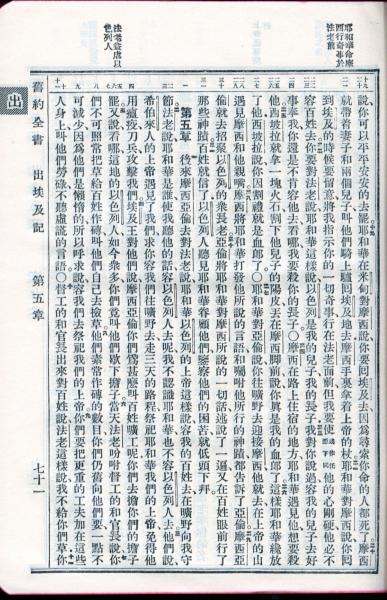 耶和華命摩
西行奇事於
法老前
法老苦虐以
色列人
說你可以平平安安的去罷耶和華在米甸對摩西說你要回埃及去因為尋索你命的人都死了摩西
就帶着妻子和兩個兒子叫他們騎上驢回埃及地去摩西手裏拿着上帝的杖耶和華對摩西說你回
到埃及的時候要留意將我指示你的一切奇事行在法老面前但我要使他的心剛硬他必不
容百姓去你要對法老說耶和華這樣說以色列是我的兒子我的長子我對你說過容我的兒子去好
事奉我你還是不肯容他去看哪我要殺你的長子○摩西在路上住宿的地方耶和華遇見他想要殺
他西坡拉就拿一塊火石割下他兒子的陽皮丟在摩西腳前說你真是我的血郎了耶和華纔放
了他西坡拉說你因割禮就是血郎了○耶和華對亞倫說你往曠野去迎接摩西他就去在上帝的山
遇見摩西和他親嘴摩西將耶和華打發他所說的言語和囑咐他所行的神蹟都告訴了亞倫摩西亞
倫就去招聚以色列的衆長老亞倫將耶和華對摩西所說的一切話述說了一遍又在百姓眼前行了
那些神蹟百姓就信了以色列人聽見耶和華眷顧他們鑒察他們的困苦就低頭下拜
第五章 後來摩西亞倫去對法老說耶和華以色列的上帝這樣說容我的百姓去在曠野向我守
節法老說耶和華是誰使我聽他的話容以色列人去呢我不認識耶和華也不容以色列人去他們說
希伯來人的上帝遇見了我們求你容我們往曠野去走三天的路程祭祀耶和華我們的上帝免得他
用瘟疫刀兵攻擊我們埃及王對他們說摩西亞倫你們爲甚麼叫百姓曠工呢你們去擔你們的擔子
罷又說看哪這地的以色列人如今衆多你們竟叫他們歇下擔子當天法老吩咐督工的和官長說你
們不可照常把草給百姓作磚叫他們自己去撿草他們素常作磚的數目你們仍舊向他們要一點不
可減少因爲他們是懶惰的所以呼求說容我們去祭祀我們的上帝你們要把更重的工夫加在這些
人身上叫他們勞碌不聽虛謊的言語○督工的和官長出來對百姓說法老這樣說我不給你們草你
舊約全書 出埃及記 第五章 七十一
出